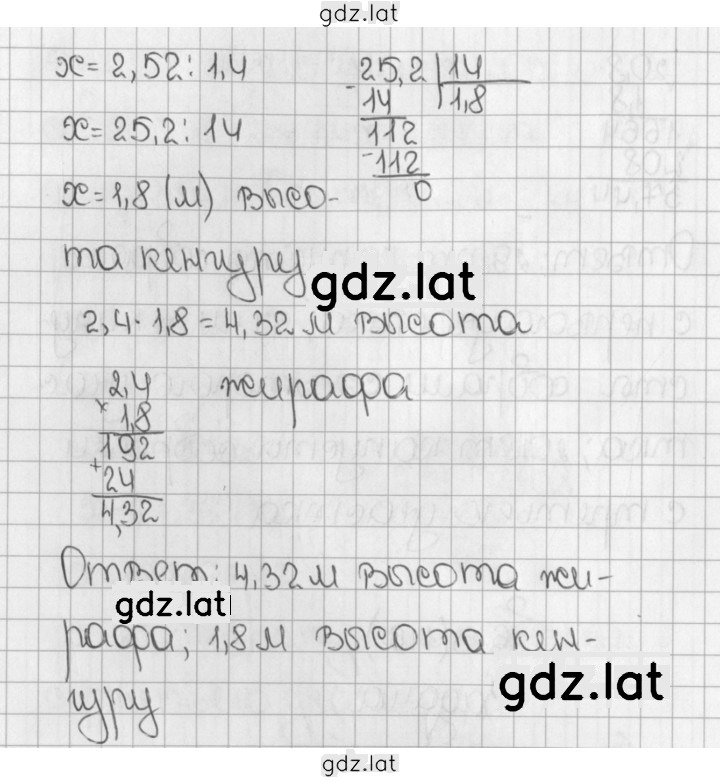 gdz.lat
x = 2,52 : 1,4
x = 25,2 : 14
x = 1,8 (м) высо-
та кенгуру
25,2 | 14
- 14 | 1,8
112
- 112
0
gdz.lat
2,4 · 1,8 = 4,32 м высота
жирафа
2,4
× 1,8
192
+ 24
4,32
Ответ: 4,32 м высота жи-
gdz.lat
рафа; 1,8 м высота кен-
гуру
gdz.lat
gdz.lat